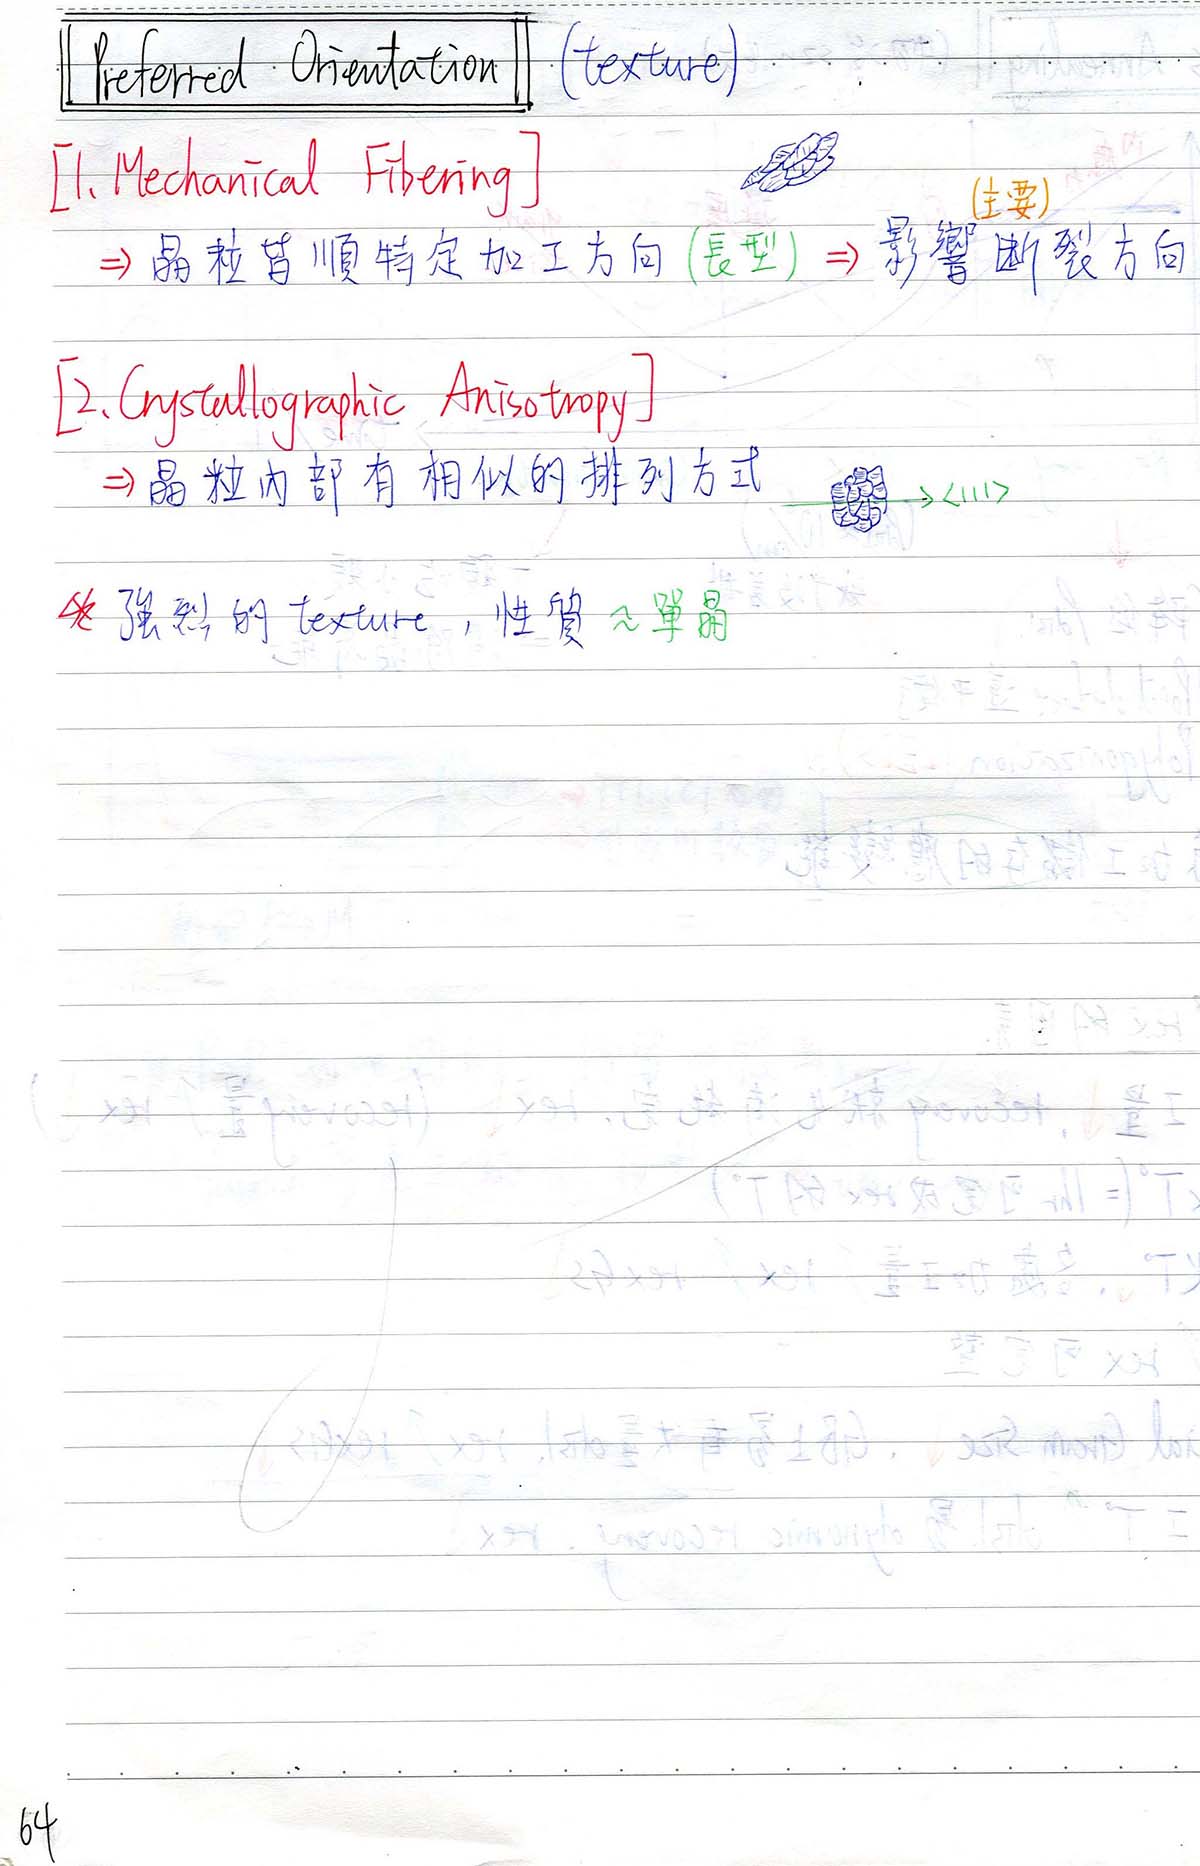 Preferred Orientation (texture)
[1. Mechanical Fibering]
(主要)
⇒ 晶粒皆順特定加工方向 (長型) ⇒ 影響斷裂方向
[2. Crystallographic Anisotropy]
⇒ 晶粒內部有相似的排列方式 → <111>
* 強烈的 texture, 性質 ~ 單晶
64